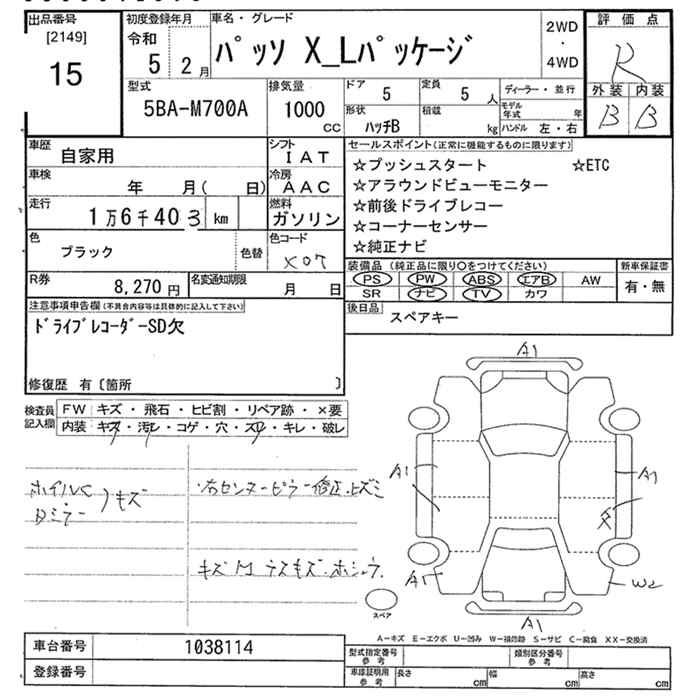 出品番号 [2149] 15
初度登録年月 令和 5 2月
車名・グレード パッソ X_Lパッケージ
2WD ・ 4WD
評価点 R
外装 B 内装 B
型式 5BA-M700A
排気量 1000 CC
ドア 5 定員 5 人
形状 ハッチB 積載 kg
ディーラー・並行
モデル年式 年
ハンドル 左・右
車歴 自家用
シフト IAT
車検 年 月( 日)
冷房 AAC
走行 1万6千403 km
燃料 ガソリン
色 ブラック 色替
色コード X07
R券 8,270円
名変通知期限 月 日
セールスポイント(正常に機能するものに限ります)
☆プッシュスタート ☆ETC
☆アラウンドビューモニター
☆前後ドライブレコー
☆コーナーセンサー
☆純正ナビ
装備品 (純正品に限り○をつけてください)
PS PW ABS エアB AW
SR ナビ TV カワ
新車保証書 有・無
後日品 スペアキー
注意事項申告欄(不具合内容等は具体的に記入して下さい)
ドライブレコーダーSD欠
修復歴 有〔箇所 〕
検査員記入欄
FW キズ・飛石・ヒビ割・リペア跡・×要
内装 キズ・汚レ・コゲ・穴・スレ・キレ・破レ
ホイルC
Dミラー )キズ
・右センターピラー修正、ヒズミ
キズ M ラスキズ.ホシュウ.
A1
A1
A1
A1
W2
A1
スペア
A-キズ E-エクボ U-凹み W-補修跡 S-サビ C-腐食 XX-交換済
車台番号 1038114
登録番号
型式指定番号 参考
類別区分番号 参考
車庫証明用 参考 長さ cm 幅 cm 高さ cm